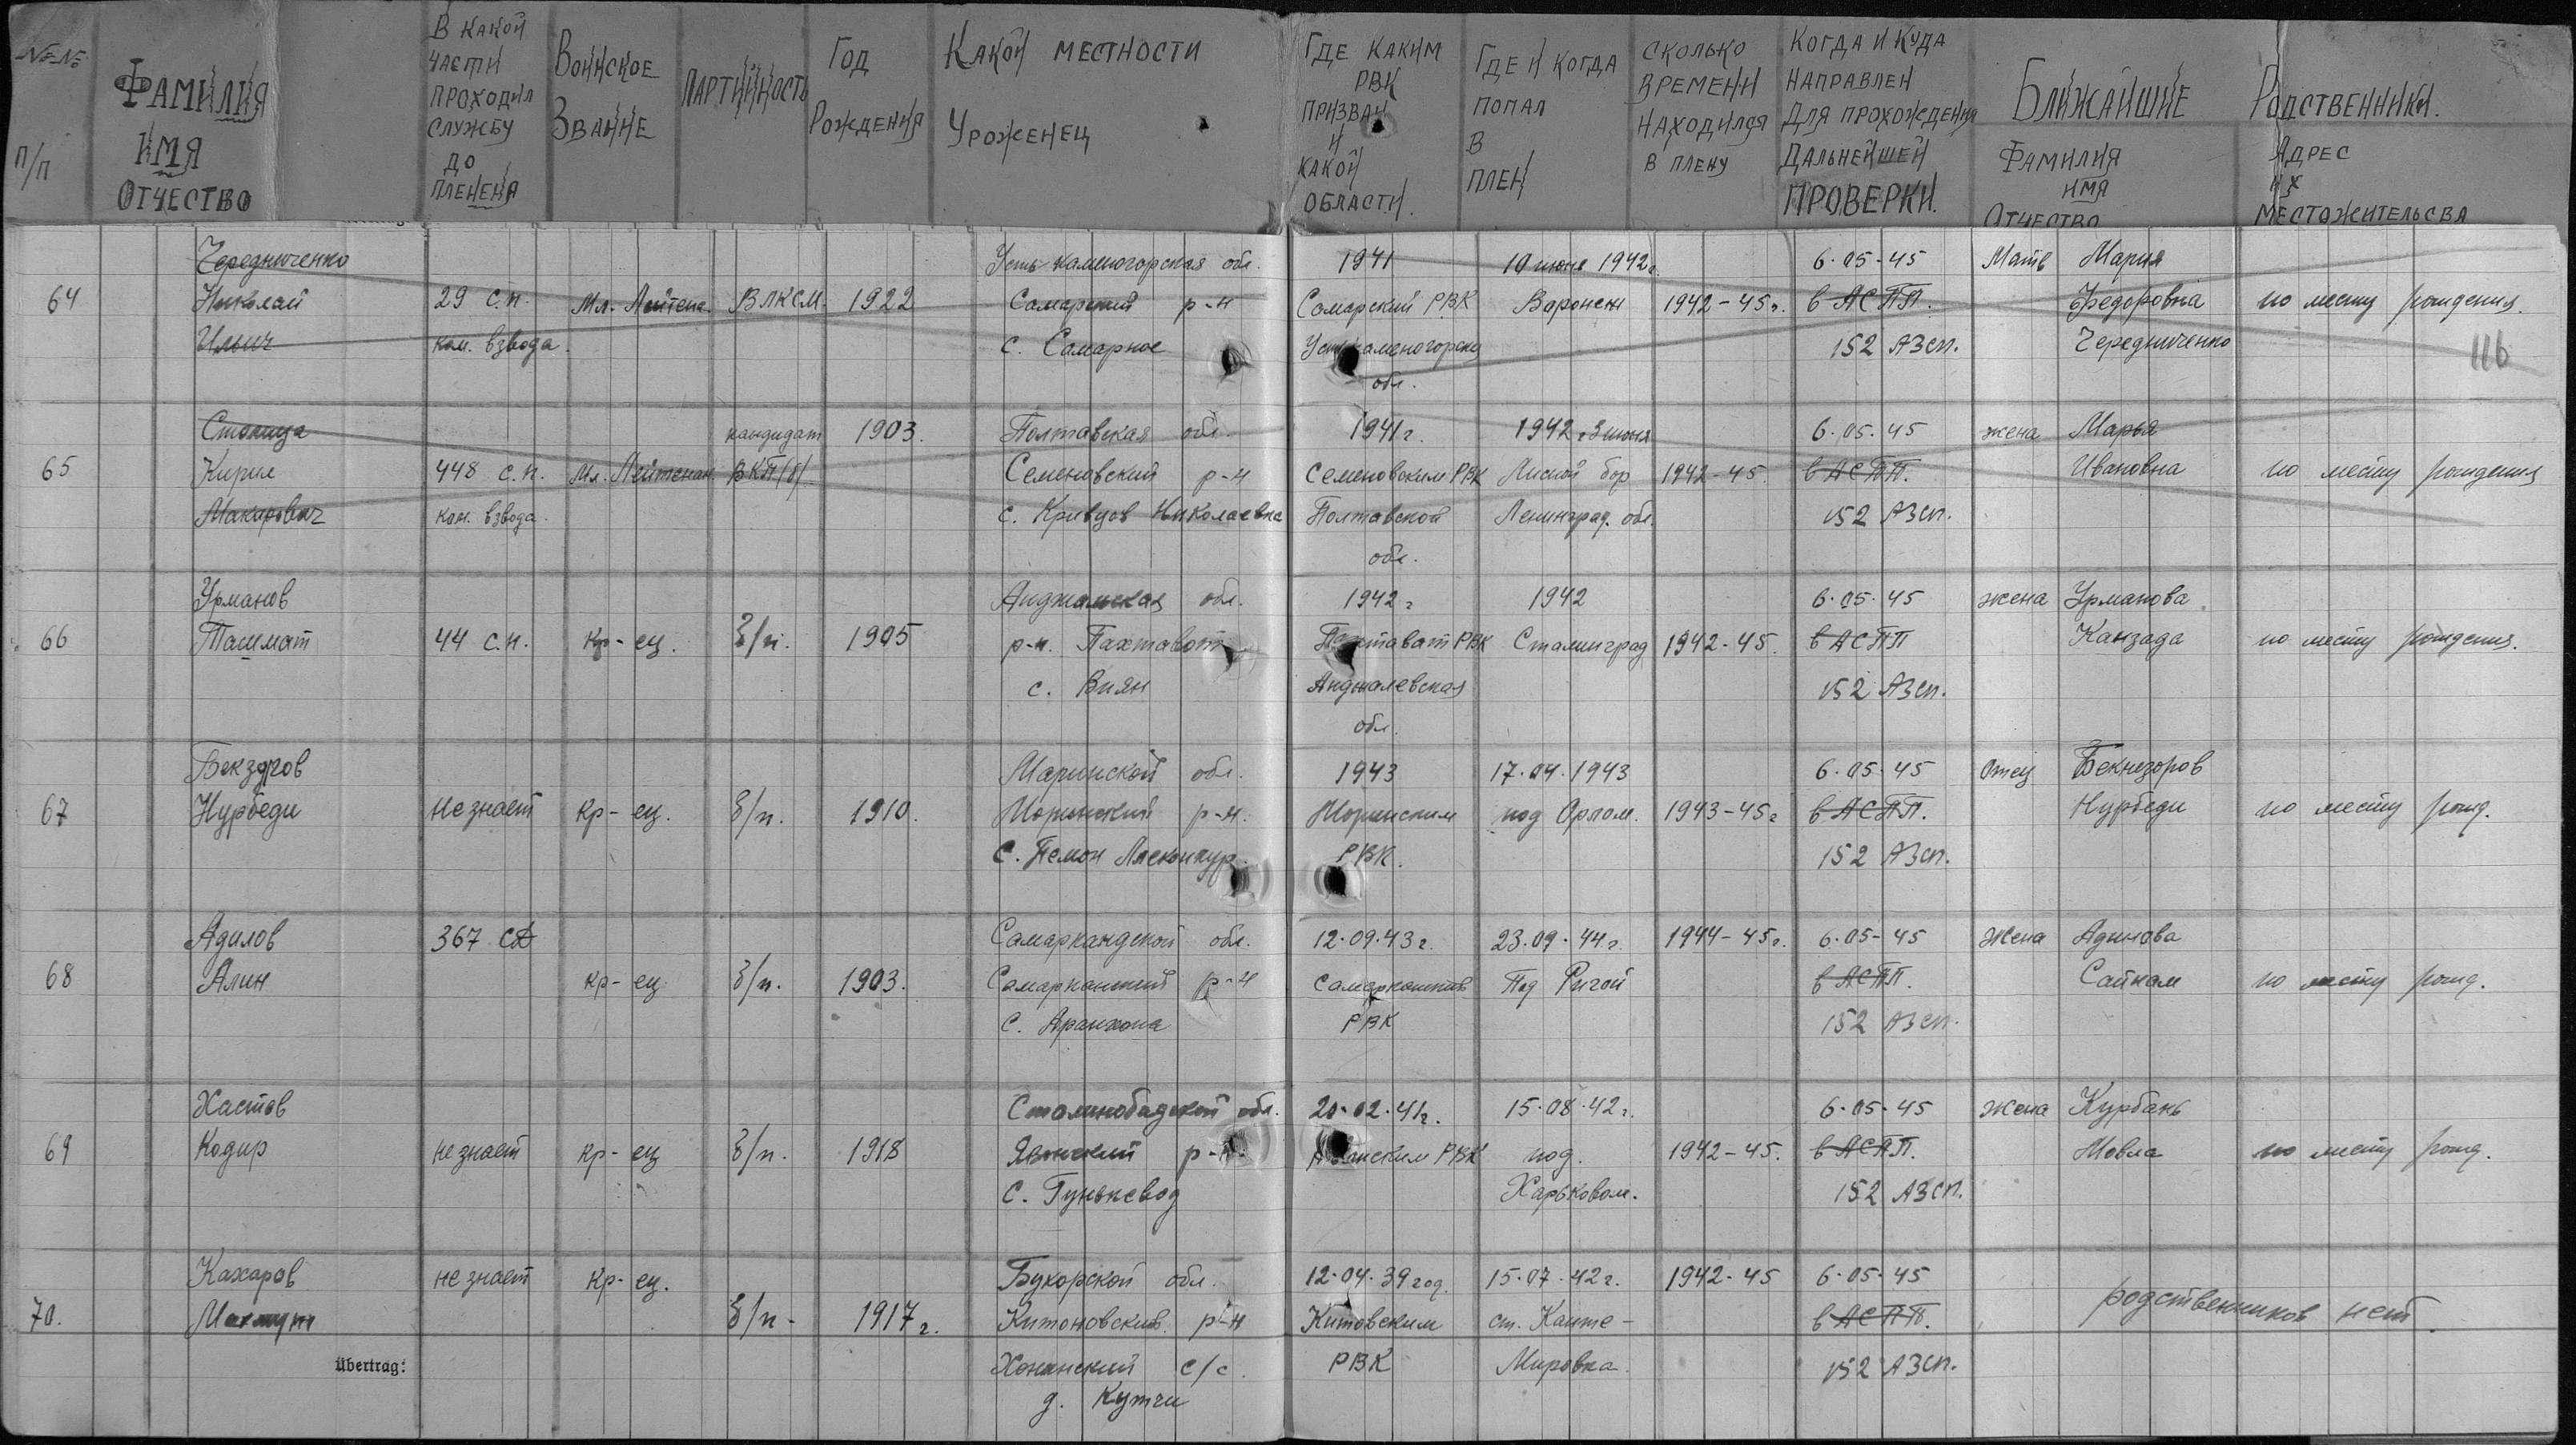 №№ п/п
Фамилия имя отчество
В какой части проходил службу до пленена
Воинское звание
Партийность
Год рождения
Какой местности уроженец
Где каким РВК призван и какой области.
Где и когда попал в плен
Сколько времени находился в плену
Когда и куда направлен для прохождения дальнейшей проверки.
Ближайшие родственники.
Фамилия имя отчество
Адрес их местожительсва
116
Чередниченко Усть-каменогорская обл. 1941 10 июня 1942г. 6.05.45 Мать Мария
64 Николай 29 с.п. Мл. Лейтена. ВЛКСМ. 1922 Самарский р-н Самарский РВК Воронеж 1942-45г. в АСПП. Федоровна по месту рождения.
Ильич ком. взвода. с. Самарное Устькаменогорско 152 АЗсп. Чередниченко
обл.
Столица кандидат 1903. Полтавская обл. 1941г. 1942г 3 июня 6.05.45 жена Марья
65 Кирил 448 с.п. Мл. Лейтенан. ВКП/б/. Семеновский р-н Семеновским РВК бор 1942-45. в АСПП. Ивановна по месту рождения
Макарович ком. взвода. с. Кривцов Николаевка Полтавской Ленинград. обл. 152 АЗсп.
обл.
Урманов обл. 1942г 1942 6.05.45 жена Урманова
66 Ташмат 44 с.п. кр-ец. Б/п. 1905 р-н. Пахтавот Пахтават РВК Сталинград 1942-45. в АСПП Канзада по месту рождения.
с. Виян Анджалевская 152 АЗсп.
обл.
Маринской обл. 1943 17.04.1943 6.05.45 Отец Бекнезоров
67 Нурбеди Не знает кр-ец. Б/п. 1910. р-н. под Орлом. 1943-45г в АСПП. Нурбеди по месту рожд.
С. РВК. 152 АЗсп.
Адилов 367 сд Самаркандской обл. 12.09.43г. 23.09.44г. 1944-45г. 6.05-45 Жена
68 Алин кр-ец Б/п. 1903. р-н Под Ригой в АСПП. Сайкам по месту рожд.
С. Аранхона РВК 152 АЗсп.
Хастов Сталинобадской обл. 20.02.41г. 15.08.42г. 6.05.45 жена Курбань
69 Кодир не знает кр-ец Б/п. 1918 Яванский р-н. РВК под. 1942-45. в АСПП. Мовла по месту рожд.
С. Гунькевод Харьковом. 152 АЗсп.
Кахаров не знает кр-ец. Бухорской обл. 12.04.39год. 15.07.42г. 1942-45 6.05.45 родственников нет.
70. Махмут Б/п- 1917г. Китоновский р-н Китовским ст. Канте- в АСПП.
übertrag: с/с. РВК Мировка. 152 АЗсп.
д. Кутчи